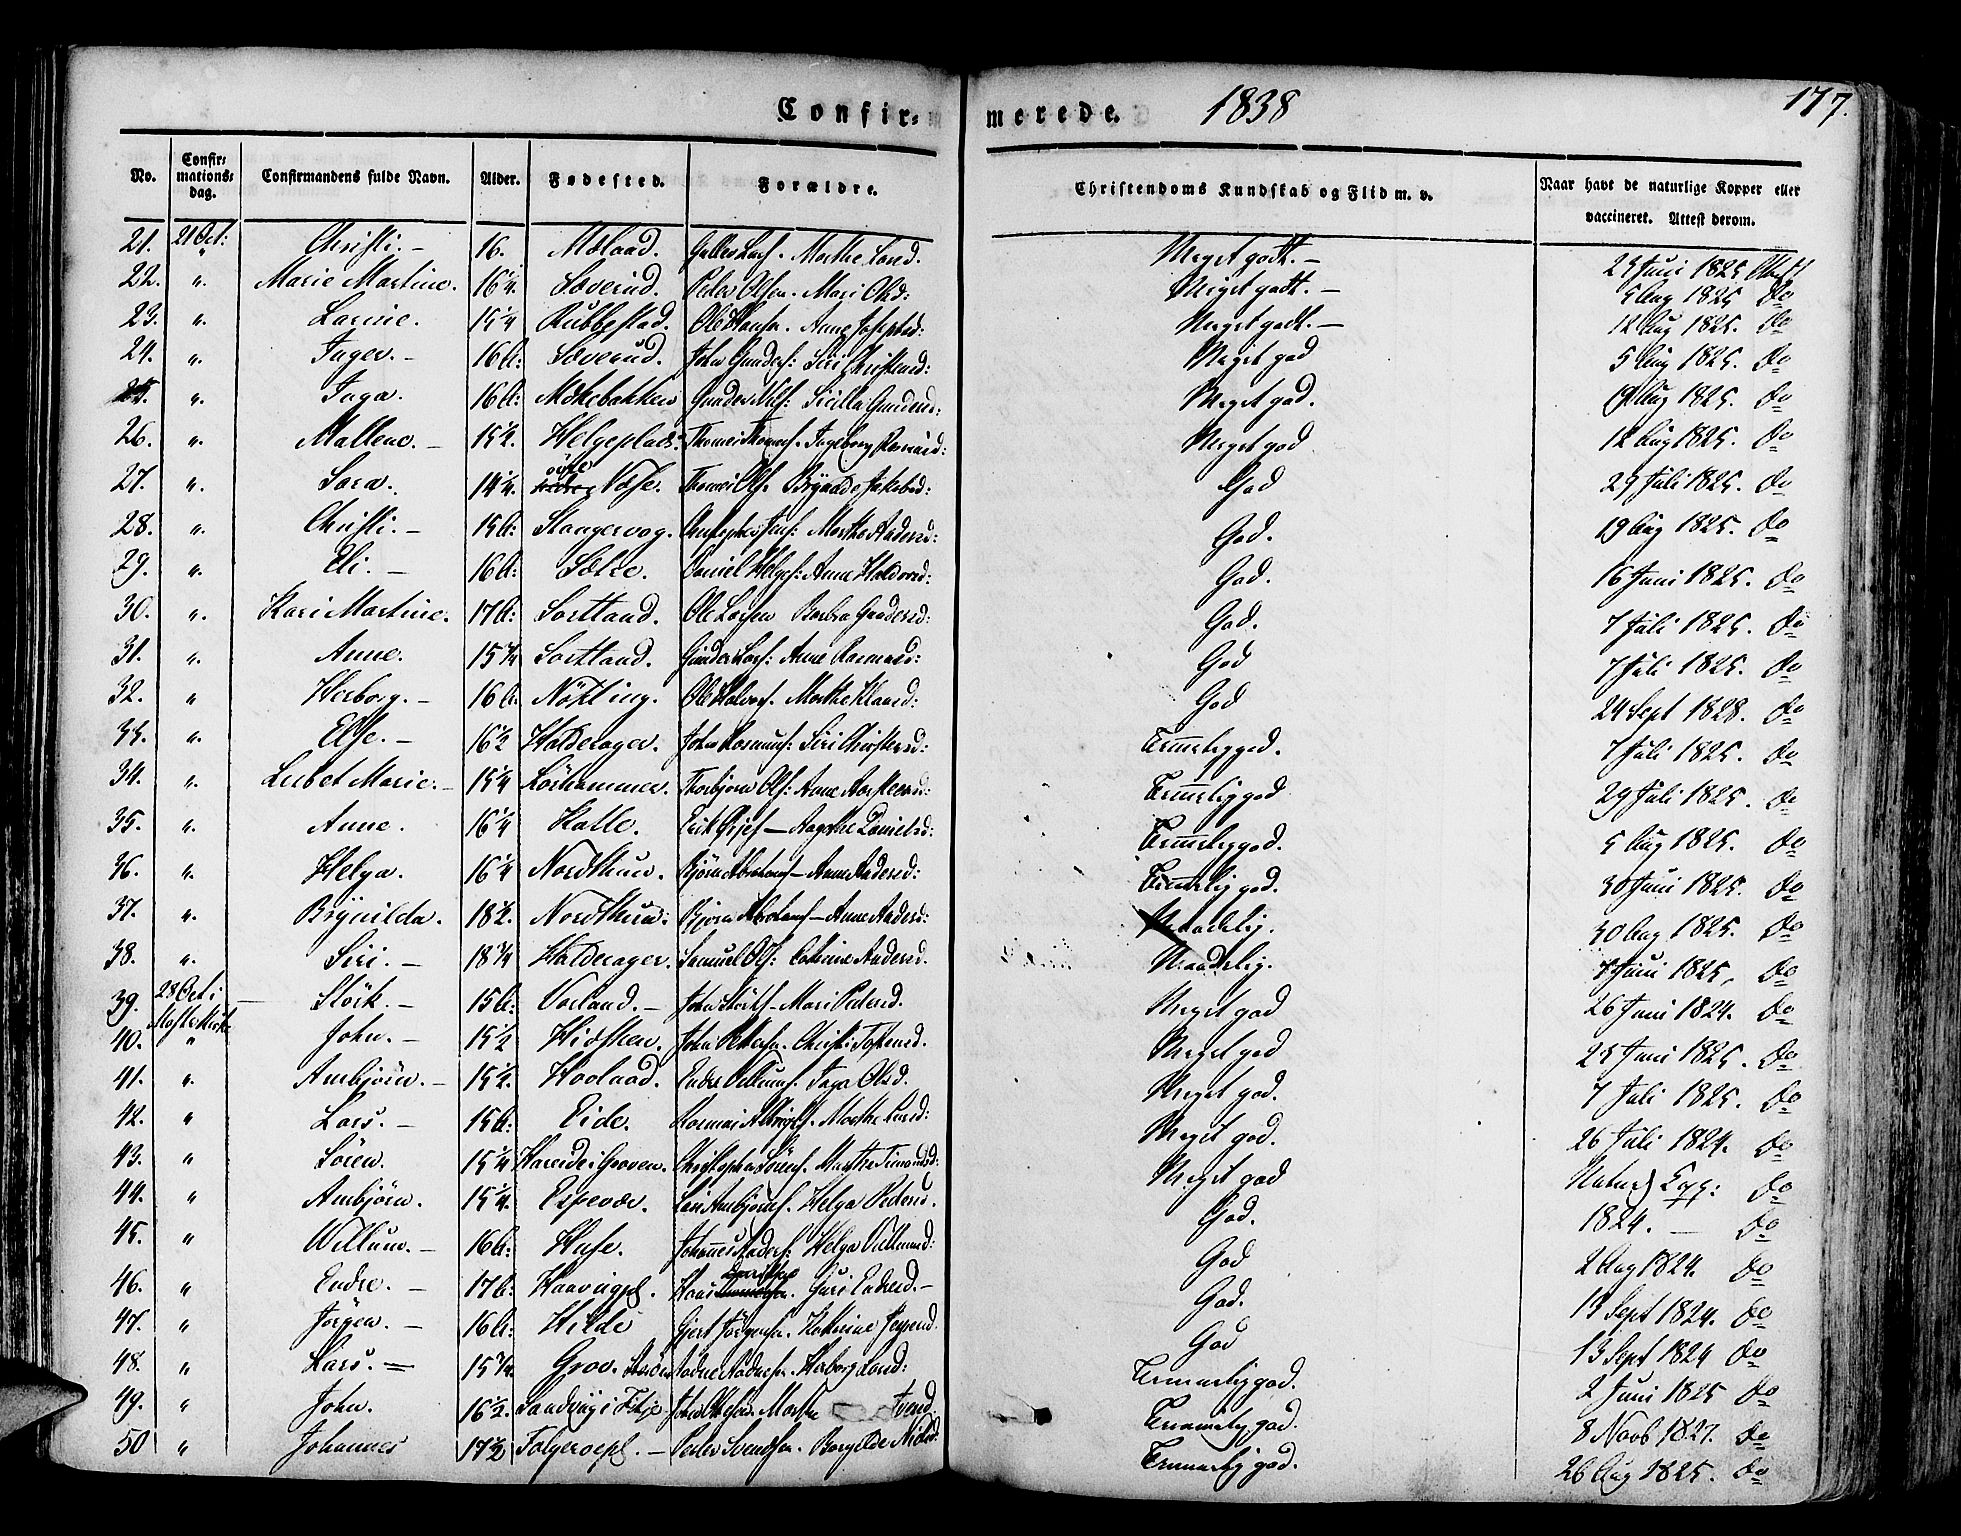 Confir- merede. 1838 177.
No. Confir- mations- dag. Confirmandens fulde Navn. Alder. Fødested. Forældre. Christendoms Kundskab og Flid m. v. Naar havt de naturlige Kopper eller vaccineret. Attest derom.
21. 21 Oct: Christi. – 16. Gullev Meget godt. – 1825
22. " Marie Martine. 16 1/4. Sæverud. Peder Olsen. Mari Olsd: Meget godt. – 5 Aug 1825 do
23. " Larine. 15 1/4 Rubbestad. Ole Hansen. Anne Josephsd: Meget godt. – 12 Aug 1825. do
24. " Inger. – 16 A: Sæverud. John Gunders: Siri Christensd: Meget god 5 Aug 1825. do
25. " Inga. 16 A: Mækebakken Gunder Nils: Sicilla Gundersd: Meget god. 19 Aug 1825. do
26. " Mallene. – 15 1/2. Helgeplads. Ingeborg Rasmusd: Meget god 12 Aug 1825. do
27. " Sara. 14 1/4. øvre Våge. Thomas Ols. Jakobsd: God 29 Juli 1825. do
28. " Christi. – 15 A: Stangervog. Marthe Andersd: God. 19 Aug 1825. do
29. " Eli. – 16 A: Sætre. Daniel Helges: Anne Haldorsd: God. 16 Juni 1825. do
30. " Kari Martine. 17 A: Sortland. Ole Larsen Barbra Gundersd: God. 7 Juli 1825. do
31. " Anne. 15 3/4 Sortland. Gunder Lars: Anne Rasmusd: God 7 Juli 1825. do
32. " Herborg. – 16 A: Nøkling. Ole Halvors. Marthe Klausd: God 24 Sept 1828. do
33. " Else. – 16 1/2 Halderager. John Rasmus: Siri Christensd: Temmelig god. 7 Juli 1825. do
34. " Lisbet Marie. – 15 1/4 Løkhammer. Thorbjørn Ols: Anne Temmelig god 29 Juli 1825. do
35. " Anne. 16 1/4 Halle. Erik – Danielsd: Temmelig god. 5 Aug 1825. do
36. " Helga. 16 1/4 Nordthun. Bjørn Abrahams – Anne Andersd: Temmelig god. 30 Juni 1825. do
37. " Brynilda. 18 1/2. Nordthun: Bjørn Abrahams – Anne Andersd: Maadelig. 30 Aug 1825. do
38. " Siri. – 18 3/4 Halderager. Samuel Ols: Cathrine Andersd. Maadelig. 7 Juni 1825. do
39. 28 Oct i Moster Kirke Størk. – 15 A: Vorland. – John Størks – Mari Pedersd. Meget god 26 Juni 1824. do
40. " John. – 15 1/2 Hidsken. John Pettersen. Christi Meget god 25 Juni 1825. do
41. " Ambjørn. – 15 1/2. Hovland. Endre Villums: Inga Olsd. Meget god. 7 Juli 1825. do
42. " Lars. – 15 A: Eide. Marthe Larsd: Meget god. 26 Juli 1824. do
43. " Søren. 15 1/4 Hareide i Groven. Christopher Sørens. Marthe Simonsd: Meget god Naturl do
44. " Ambjørn. 15 1/4. Espevær. Lars Ambjørns. Helga Pedersd. God. 1824. – do
45. " Willum. – 16 A: Huse. Johannes Anders: Helga Villumsd: God 2 Aug 1824. do
46. " Endre. – 17 A: Haavigpl. Hans Guri Endresd. – God. 13 Sept 1824. do
47. " Jørgen. – 16 A: Hilde Gjert Jørgensen. Kathrine God 13 Sept 1824 do
48. " Lars. – 15 3/4. Grov. Aadne Aadnesen. Herborg Larsd: Temmelig god. 2 Juni 1825 do
49. " John. 16 1/2. Sandvig i Fitje John Olsen. Marthe Iversd. Temmelig god. 8 Novb 1827. do
50 " Johannes 17 1/2 Folgerøepl. – Peder Svendsen. Borgilde Nielsd: Temmelig god. 26 Aug 1825. do